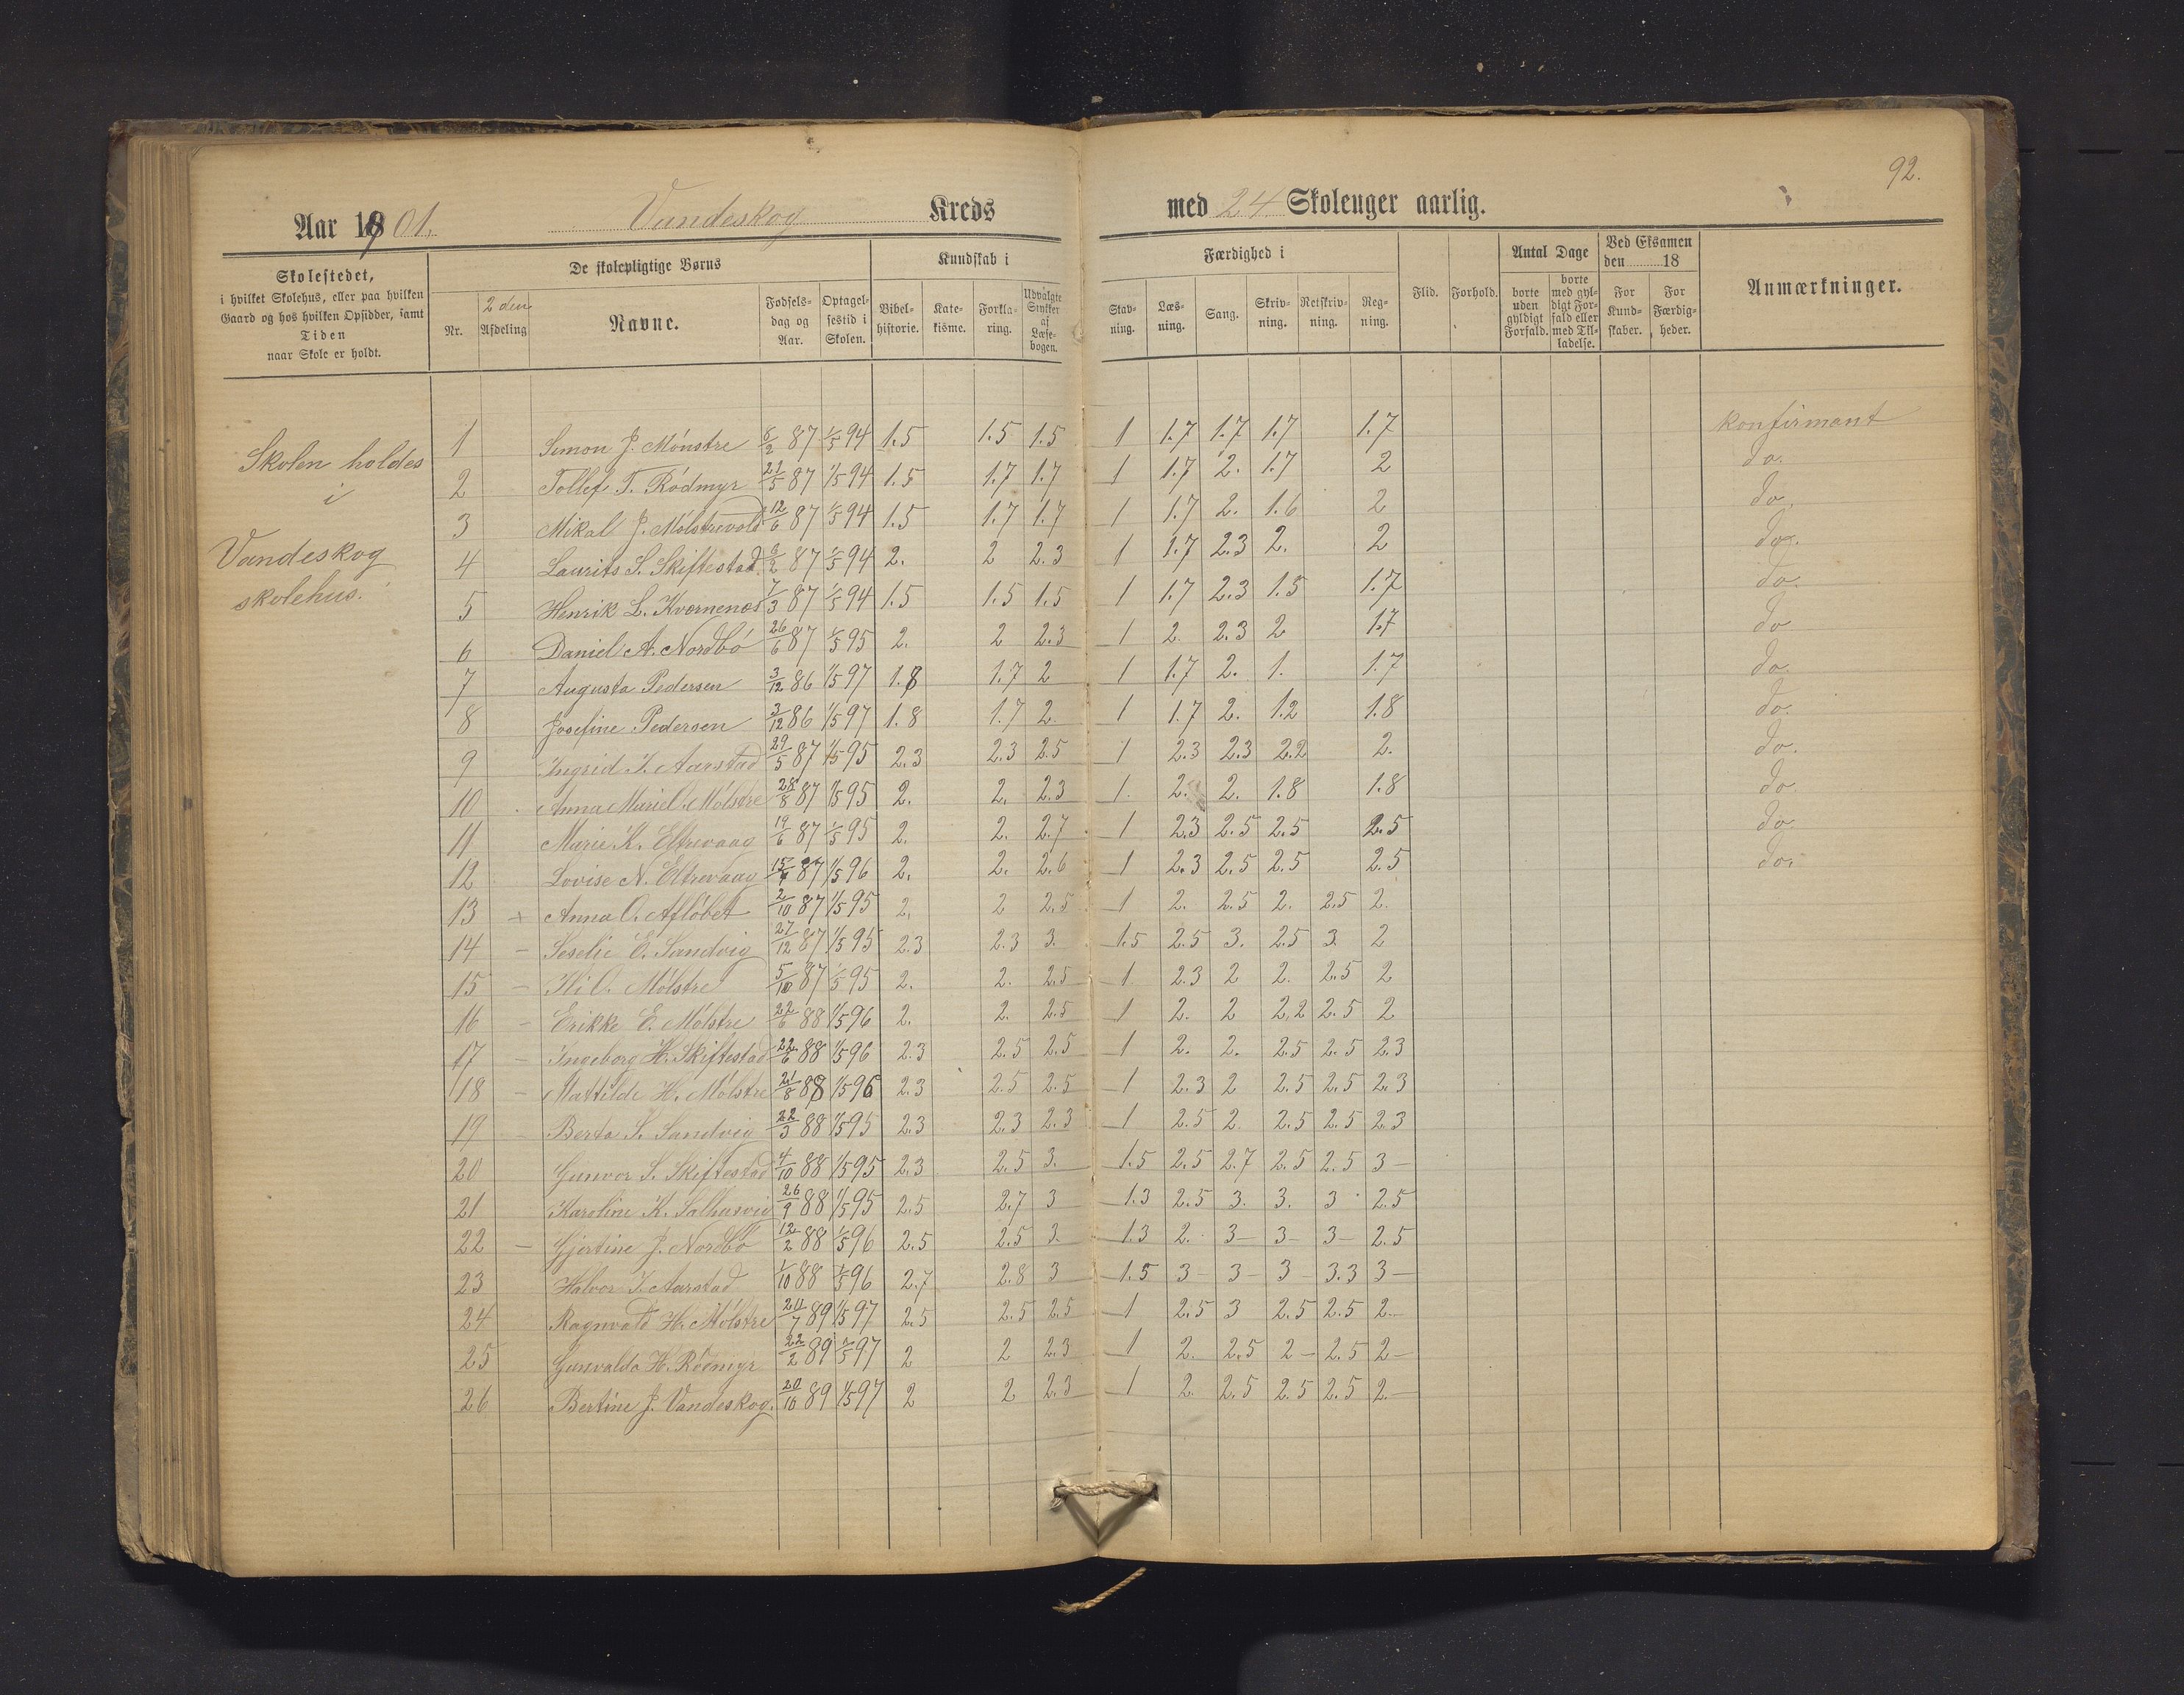 92.
Aar 1901. Vandeskog Kreds med 24 Skoleuger aarlig.
Skolestedet, i hvilket Skolehus, eller paa hvilken Gaard og hos hvilken Opsidder, samt Tiden naar Skole er holdt.
De skolepligtige Børns
Nr. 2den Afdeling Navne. Fødsels-dag og Aar. Optagel-sestid i Skolen.
Kundskab i
Bibel-historie. Kate-kisme. Forkla-ring. Udvalgte Stykker af Læse-bogen.
Færdighed i
Stav-ning. Læs-ning. Sang. Skriv-ning. Retskriv-ning. Reg-ning.
Flid. Forhold.
Antal Dage
borte uden gyldigt Forfald. borte med gyl-digt For-fald eller med Til-ladelse.
Ved Eksamen den 18
For Kund-skaber. For Færdig-heder.
Anmærkninger.
Skolen holdes
i
Vandeskog
skolehus.
1 Simon J. Mónstre 6/2 87 1/5 94 1.5 1.5 1.5 1 1.7 1.7 1.7 1.7 konfirmant
2 Tollef T. Ródmyr 21/5 87 1/5 94 1.5 1.7 1.7 1 1.7 2. 1.7 2 do.
3 Mikal J. Mólstrevold 12/6 87 1/5 94 1.5 1.7 1.7 1 1.7 2. 1.6 2 do.
4 Laurits S. Skiftestad 2 87 1/5 94 2. 2 2.3 1 1.7 2.3 2. 2 do.
5 Henrik L. Kvernenæs 7/3 87 1/5 94 1.5 1.5 1.5 1 1.7 2.3 1.5 1.7 do.
6 Daniel A. Nordbó 26/6 87 1/5 95 2. 2 2.3 1 2. 2.3 2 1.7 do
7 Augusta Pedersen 3/12 86 1/5 97 1.8 1.7 2 1 1.7 2. 1. 1.7 do.
8 Josefine Pedersen 3/12 86 1/5 97 1.8 1.7 2 1 1.7 2. 1.2 1.8 do.
9 Ingrid I. Aarstad 29/5 87 1/5 95 2.3 2.3 2.5 1 2.3 2.3 2.2 2. do.
10 Anna Marie O. Mólstre 28/8 87 1/5 95 2. 2. 2.3 1. 2. 2. 1.8 1.8 do
11 Marie K. Eltrevaag 19/6 87 1/5 95 2. 2. 2.7 1 2.3 2.5 2.5 2.5 do.
12 Lovise N. Eltrevaag 15 87 1/5 96 2. 2. 2.6 1 2.3 2.5 2.5 2.5 do.
13 + Anna O. Aflóbet 2/10 87 1/5 95 2. 2 2.5 1 2. 2.5 2. 2.5 2.
14 – Seselie E. Sandvig 27/12 87 1/5 95 2.3 2.3 3. 1.5 2.5 3. 2.5 3. 2
15 – O. Mólstre 5/10 87 1/5 95 2. 2. 2.5 1. 2.3 2 2. 2.5 2
16 – Erikke E. Mólstre 22/6 88 1/5 96 2. 2. 2.5 1 2. 2 2.2 2.5 2
17 – Ingeborg H. Skiftestad 22/6 88 1/5 96 2.3 2.5 2.5 1 2. 2. 2.5 2.5 2.3
18 – Mattilde H. Mólstre 21/8 88 1/5 96 2.3 2.5 2.5 1 2.3 2 2.5 2.5 2.3
19 – Berta S. Sandvig 22/3 88 1/5 95 2.3 2.3 2.3 1 2.5 2. 2.5 2.5 2.3
20 Gunvor S. Skiftestad 4/10 88 1/5 95 2.3 2.5 3. 1.5 2.5 2.7 2.5 2.5 3 –
21 Karoline K. Salhusvig 26/9 88 1/5 95 2.5 2.7 3 1.3 2.5 3. 3. 3 2.5
22 – Gjertine J. Nordbó 12/2 88 1/5 96 2.5 2.5 3. 1.3 2. 3 – 3 – 3 – 2.5
23 Halvor I. Aarstad 1/10 88 1/5 96 2.7 2.8 3 1.5 3 – 3 – 3 – 3.3 3 –
24 Ragnvald H. Mólstre 7 89 1/5 97 2.5 2.5 2.5 1 2.5 3 2.5 2.5 2 –
25 Gunvalda H. Ródmyr 22/2 89 1/5 97 2 2 2.3 1 2. 2.5 2 – 2.5 2 –
26 Bertine J. Vandeskog. 20/10 89 1/5 97 2 2 2.3 1 2. 2.5 2.5 2.5 2 –